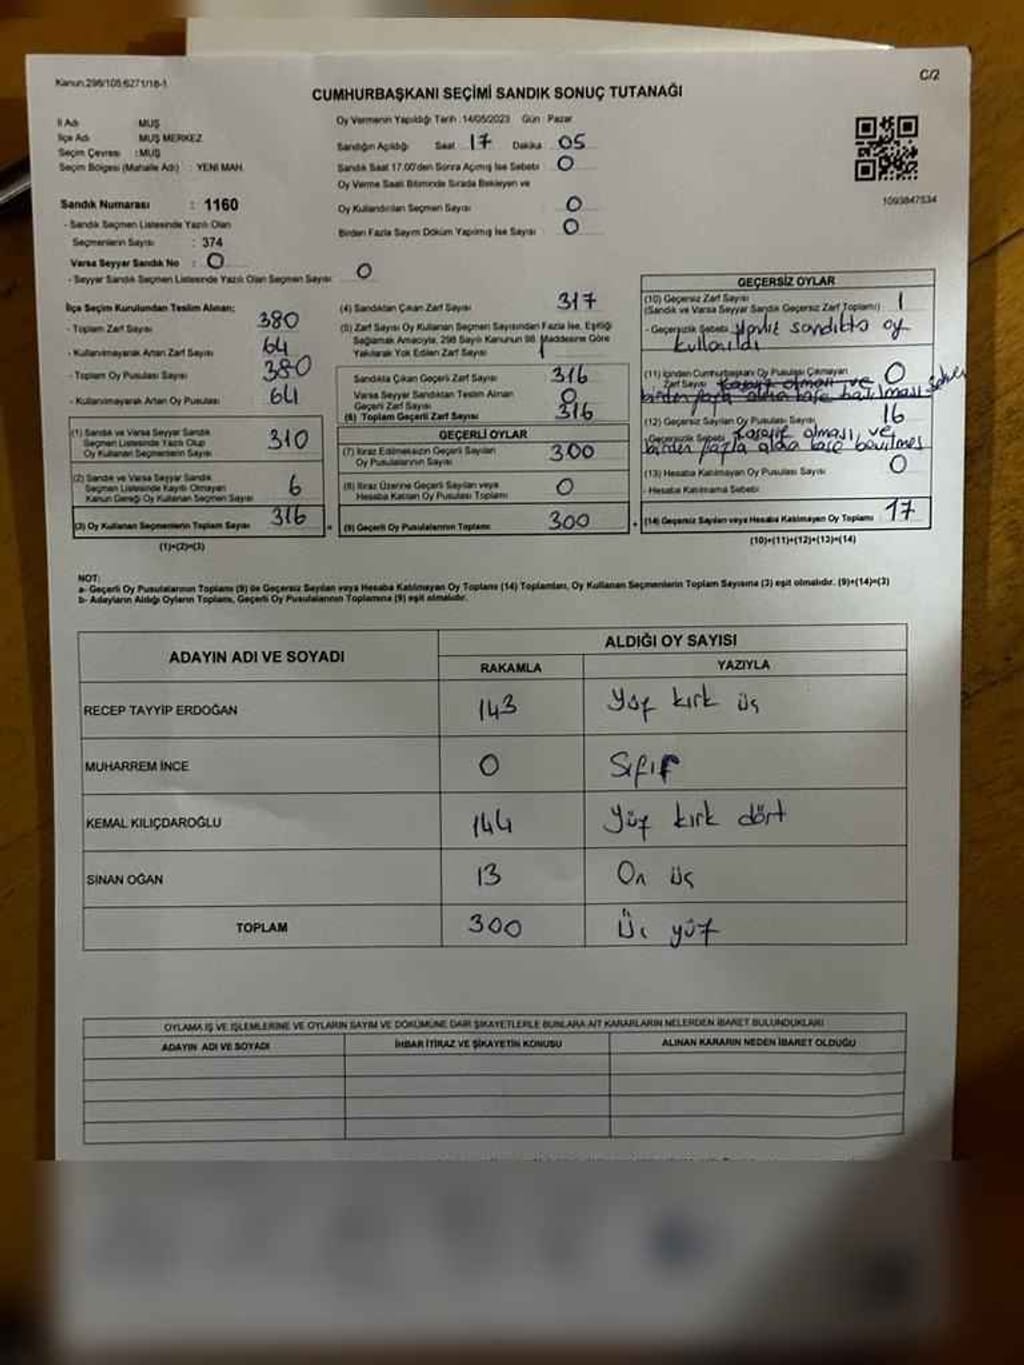 Kanun:298/105;6271/18-1
C/2
CUMHURBAŞKANI SEÇİMİ SANDIK SONUÇ TUTANAĞI
İl Adı : MUŞ
İlçe Adı : MUŞ MERKEZ
Seçim Çevresi : MUŞ
Seçim Bölgesi (Mahalle Adı) : YENİ MAH.
Oy Vermenin Yapıldığı Tarih : 14/05/2023 Gün : Pazar
Sandığın Açıldığı Saat 17 Dakika 05
Sandık Saat 17.00'den Sonra Açılmış İse Sebebi 0
Oy Verme Saati Bitiminde Sırada Bekleyen ve
Oy Kullandırılan Seçmen Sayısı 0
Birden Fazla Sayım Döküm Yapılmış İse Sayısı 0
1093847534
Sandık Numarası : 1160
- Sandık Seçmen Listesinde Yazılı Olan
Seçmenlerin Sayısı : 374
Varsa Seyyar Sandık No : 0
- Seyyar Sandık Seçmen Listesinde Yazılı Olan Seçmen Sayısı 0
İlçe Seçim Kurulundan Teslim Alınan;
- Toplam Zarf Sayısı 380
- Kullanılmayarak Artan Zarf Sayısı 64
- Toplam Oy Pusulası Sayısı 380
- Kullanılmayarak Artan Oy Pusulası 64
(1) Sandık ve Varsa Seyyar Sandık
Seçmen Listesinde Yazılı Olup
Oy Kullanan Seçmenlerin Sayısı 310
(2) Sandık ve Varsa Seyyar Sandık
Seçmen Listesinde Kayıtlı Olmayan
Kanun Gereği Oy Kullanan Seçmen Sayısı 6
(3) Oy Kullanan Seçmenlerin Toplam Sayısı 316
(1)+(2)=(3)
(4) Sandıktan Çıkan Zarf Sayısı 317
(5) Zarf Sayısı Oy Kullanan Seçmen Sayısından Fazla İse, Eşitliği
Sağlamak Amacıyla, 298 Sayılı Kanunun 98. Maddesine Göre
Yakılarak Yok Edilen Zarf Sayısı 1
Sandıkta Çıkan Geçerli Zarf Sayısı 316
Varsa Seyyar Sandıktan Teslim Alınan
Geçerli Zarf Sayısı 0
(6) Toplam Geçerli Zarf Sayısı 316
GEÇERLİ OYLAR
(7) İtiraz Edilmeksizin Geçerli Sayılan
Oy Pusulalarının Sayısı 300
(8) İtiraz Üzerine Geçerli Sayılan veya
Hesaba Katılan Oy Pusulası Toplamı 0
(9) Geçerli Oy Pusulalarının Toplamı 300
GEÇERSİZ OYLAR
(10) Geçersiz Zarf Sayısı
(Sandık ve Varsa Seyyar Sandık Geçersiz Zarf Toplamı) 1
- Geçersizlik Sebebi sandıkta oy
kullanıldı
(11) İçinden Cumhurbaşkanı Oy Pusulası Çıkmayan
Zarf Sayısı 0
(12) Geçersiz Sayılan Oy Pusulası Sayısı 16
- Geçersizlik Sebebi olması, ve
birden fazla alana kaşe
(13) Hesaba Katılmayan Oy Pusulası Sayısı 0
- Hesaba Katılmama Sebebi
(14) Geçersiz Sayılan veya Hesaba Katılmayan Oy Toplamı 17
(10)+(11)+(12)+(13)=(14)
NOT:
a- Geçerli Oy Pusulalarının Toplamı (9) ile Geçersiz Sayılan veya Hesaba Katılmayan Oy Toplamı (14) Toplamları, Oy Kullanan Seçmenlerin Toplam Sayısına (3) eşit olmalıdır. (9)+(14)=(3)
b- Adayların Aldığı Oyların Toplamı, Geçerli Oy Pusulalarının Toplamına (9) eşit olmalıdır.
ADAYIN ADI VE SOYADI ALDIĞI OY SAYISI
RAKAMLA YAZIYLA
RECEP TAYYİP ERDOĞAN 143 Yüz kırk üç
MUHARREM İNCE 0 Sıfır
KEMAL KILIÇDAROĞLU 144 Yüz kırk dört
SİNAN OĞAN 13 On üç
TOPLAM 300 Üç yüz
OYLAMA İŞ VE İŞLEMLERİNE VE OYLARIN SAYIM VE DÖKÜMÜNE DAİR ŞİKAYETLERLE BUNLARA AİT KARARLARIN NELERDEN İBARET BULUNDUKLARI
ADAYIN ADI VE SOYADI İHBAR İTİRAZ VE ŞİKAYETİN KONUSU ALINAN KARARIN NEDEN İBARET OLDUĞU